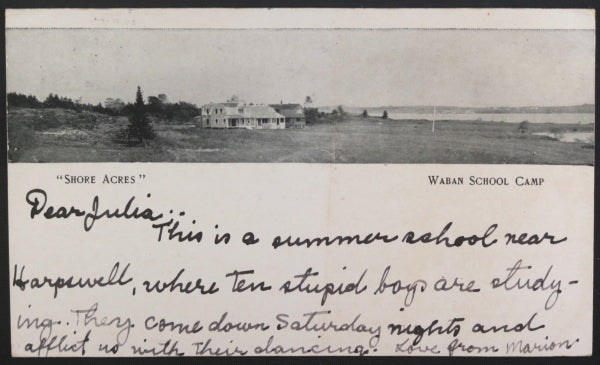 "SHORE ACRES"
WABAN SCHOOL CAMP
Dear Julia:.
This is a summer school near
Harpswell, where Ten stupid boys are study-
ing. They come down Saturday nights and
afflict us with Their dancing. Love from Marion.